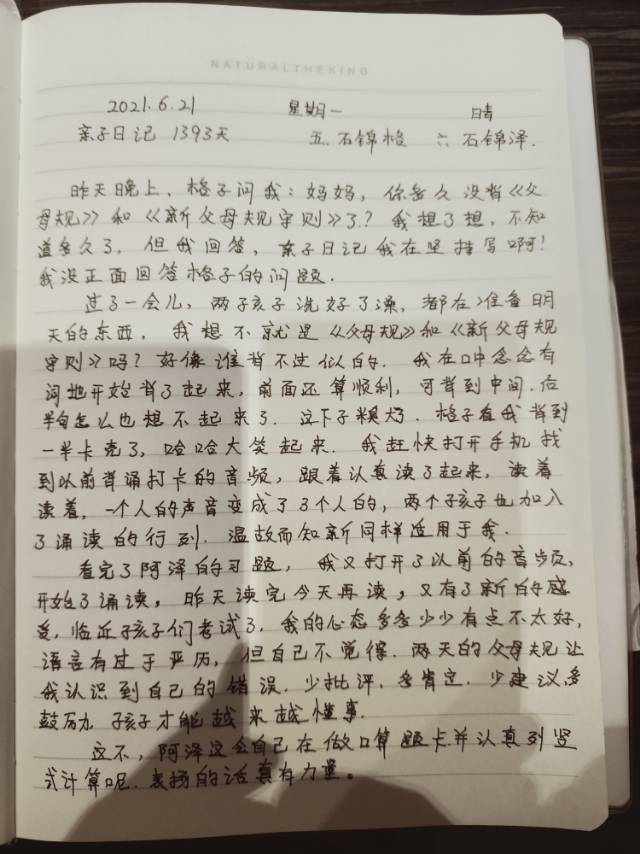 NATURALTHEKING
2021.6.21 星期一 晴
亲子日记 1393天 五.石锦格 六.石锦泽.
昨天晚上、格子问我:妈妈,你多久没背《父
母规》和《新父母规守则》了?我想了想,不知
道多久了,但我回答,亲子日记我在坚持写啊!
我没正面回答格子的问题.
过了一会儿,两孩子洗好了澡,都在准备明
天的东西,我想不就是《父母规》和《新父母规
守则》吗?好像谁背不过似的.我在口中念念有
词地开始背了起来,前面还算顺利,可背到中间.后
半句怎么也想不起来了.这下子糗大了.格子看我背到
一半卡壳了,哈哈大笑起来.我赶快打开手机找
到以前背诵打卡的音频,跟着认真读了起来,读着
读着,一个人的声音变成了3个人的,两个孩子也加入
了诵读的行列.温故而知新同样适用于我.
看完了阿泽的习题,我又打开了以前的音频,
开始了诵读,昨天读完今天再读,又有了新的感
受,临近孩子们考试了,我的心态多多少少有点不太好,
语言有过于严厉,但自己不觉得.两天的父母规让
我认识到自己的错误.少批评,多肯定.少建议,多
鼓励,孩子才能越来越懂事.
这不,阿泽这会自己在做口算题卡并认真列竖
式计算呢.表扬的话真有力量。